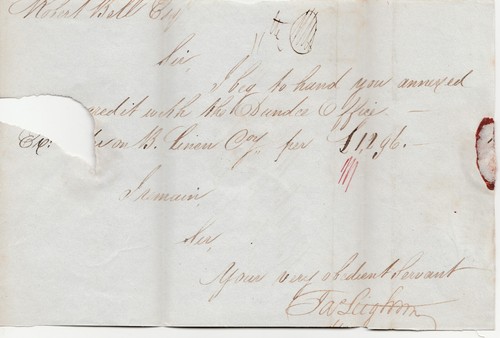 Robert Bell Esq
Sir,
I beg to hand you annexed
credit with the Dundee Office. —
on B. Linen Coy. per £1,296. —
I remain,
Sir,
Your very obedient Servant
Jas